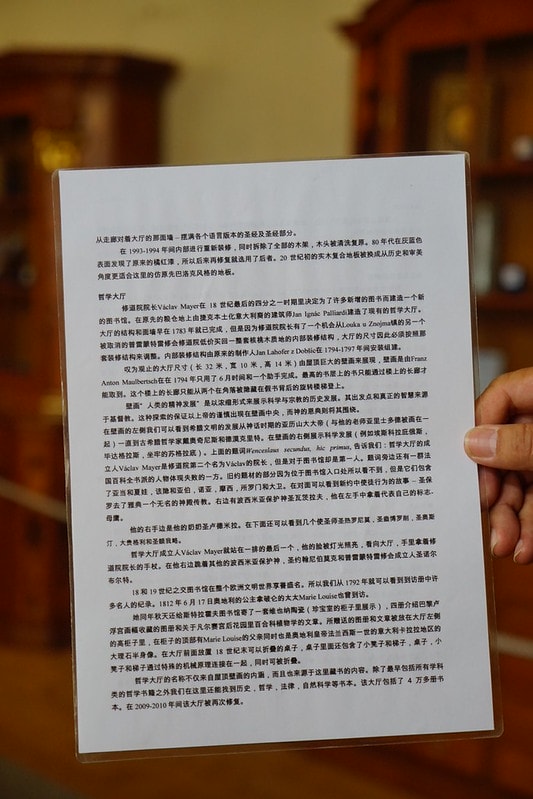 从走廊对着大厅的那面墙 – 摆满各个语言版本的圣经及圣经部分。
在 1993-1994 年间内部进行重新装修，同时拆除了全部的木架，木头被清洗复原。80 年代在灰蓝色
表面发现了原来的橘红漆，所以后来再修复就选用了后者。20 世纪初的实木复合地板被换成从历史和审美
角度更适合这里的仿原先巴洛克风格的地板。
哲学大厅
修道院院长Václav Mayer在 18 世纪最后的四分之一时期里决定为了许多新增的图书而建造一个新
的图书馆。在原先的粮仓地上由捷克本土化意大利裔的建筑师Jan Ignác Palliardi建造了现有的哲学大厅。
大厅的结构和面墙早在 1783 年就已完成，但是因为修道院院长有了一个机会从Louka u Znojma镇的另一个
被取消的普雷蒙特雷修会修道院低价买回一整套核桃木质地的内部装修结构，大厅的尺寸因此必须按照那
套装修结构来调整。内部装修结构由原来的制作人Jan Lahofer z Dobšic在 1794-1797 年间安装组建。
叹为观止的大厅尺寸（长 32 米，宽 10 米，高 14 米）由屋顶巨大的壁画来展现，壁画是由Franz
Anton Maulbertsch在在 1794 年只用了 6 月时间和一个助手完成。最高的书层上的书只能通过楼上的长廊才
能取到。这个楼上的长廊只能从两个在角落被隐藏在假书背后的旋转楼梯登上。
壁画“人类的精神发展”是以浓缩形式来展示科学与宗教的历史发展。其出发点和真正的智慧来源
于基督教。这种探索的保证以上帝的谨慎出现在壁画中央，而神的恩典则将其围绕。
在壁画的左侧我们可以看到希腊文明的发展从神话时期的亚历山大大帝（与他的老师亚里士多德被画在一
起）一直到古希腊哲学家戴奥奇尼斯和德谟克里特。在壁画的右侧展示科学发展（例如埃斯科拉庇俄斯，
毕达格拉斯，坐牢的苏格拉底）。上面的题词Wenceslaus secundus, hic primus，告诉我们：哲学大厅的成
立人Václav Mayer是修道院第二个名为Václav的院长，但是对于图书馆却是第一人。题词旁边还有一群法
国百科全书派的人物体现失败的一方。旧约题材的部分因为位于图书馆入口处所以看不到，但是它们包含
了亚当和夏娃，该隐和亚伯，诺亚，摩西，所罗门和大卫。在对面可以看到新约中使徒行为的故事 – 圣保
罗去了雅典一个无名的神殿传教。右边有波西米亚保护神圣瓦茨拉夫，他在左手中拿着代表自己的标志-
母鹰。
他的右手边是他的奶奶圣卢德米拉。在下面还可以看到几个使圣师圣热罗尼莫，圣盎博罗削，圣奥斯
汀，大贵格利和圣额我略。
哲学大厅成立人Václav Mayer就站在一排的最后一个，他的脸被灯光照亮，看向大厅，手里拿着修
道院院长的手杖。在他右边跪着其他的波西米亚保护神，圣约翰尼伯莫克和普雷蒙特雷修会成立人圣诺尔
布尔特。
18 和 19 世纪之交图书馆在整个欧洲文明世界享誉盛名。所以我们从 1792 年就可以看到到访中许
多名人的纪录。1812 年 6 月 17 日奥地利的公主拿破仑的太太Marie Louise也曾到访。
她同年秋天还给斯特拉霍夫图书馆寄了一套维也纳陶瓷（珍宝室的柜子里展示），四册介绍巴黎卢
浮宫画幅收藏的图册和关于凡尔赛宫后花园里百合科植物学的文章。所赠送的图册和文章被放在大厅左侧
的高柜子里，在柜子的顶部有Marie Louise的父亲同时也是奥地利皇帝法兰西斯一世的意大利卡拉拉地区的
大理石半身像。在大厅前面放置 18 世纪末可以折叠的桌子，桌子里面还包含了小凳子和梯子，桌子，小
凳子和梯子通过特殊的机械原理连接在一起，同时可被折叠。
哲学大厅的名称不仅来自屋顶壁画的内涵，而且也来源于这里藏书的内容。除了最早包括所有学科
类的哲学书籍之外我们在这里还能找到历史，哲学，法律，自然科学等书本。该大厅包括了 4 万多册书
本。在 2009-2010 年间该大厅被再次修复。